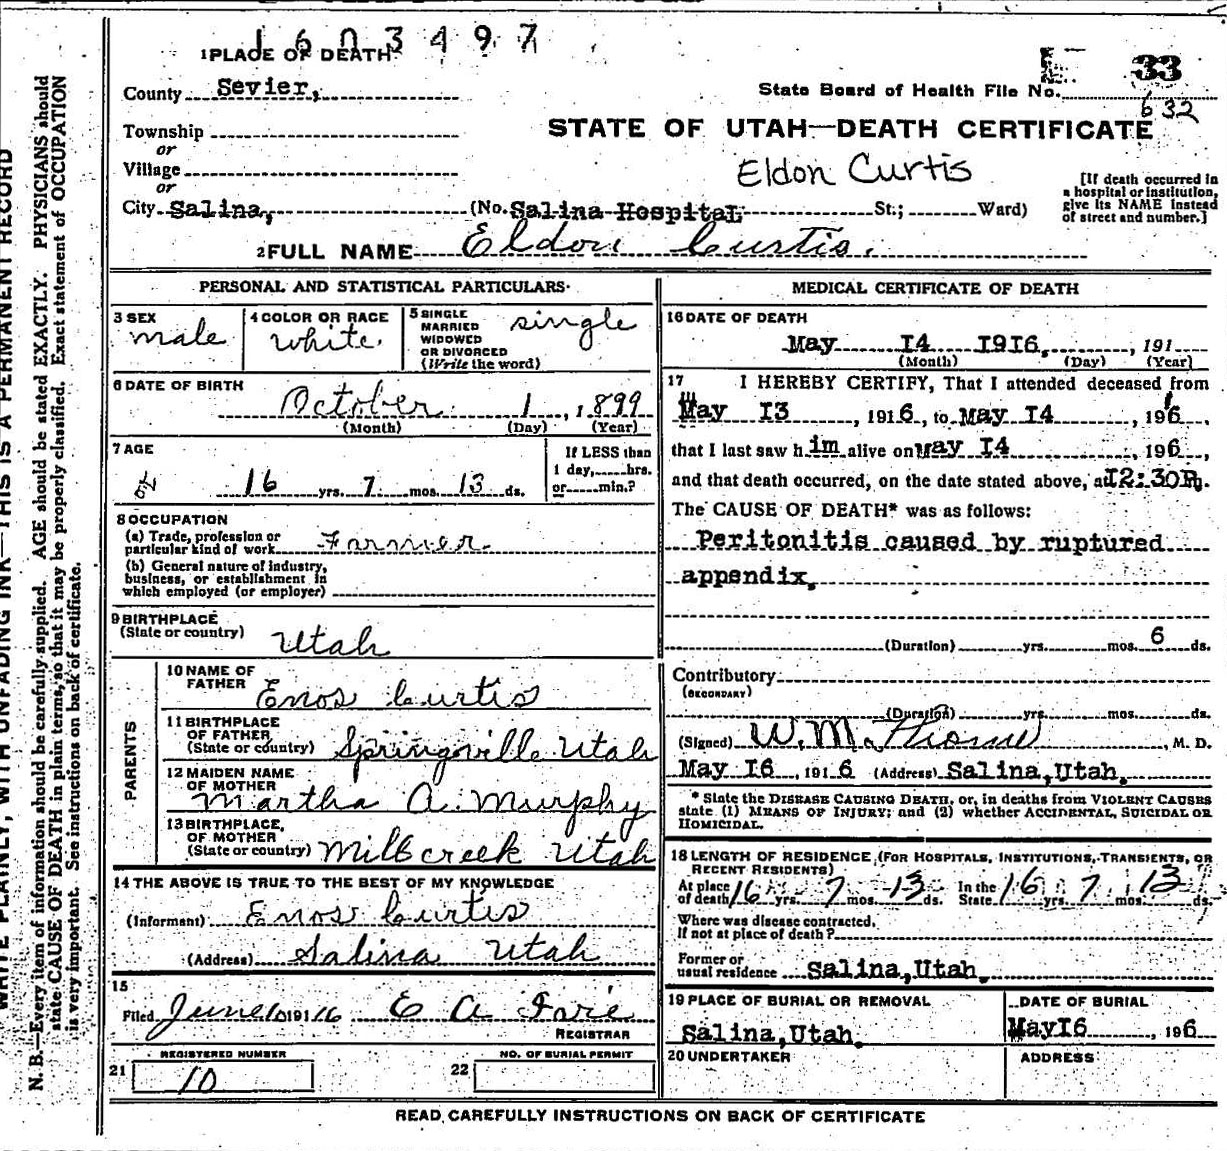 1603497
1PLACE OF DEATH
County Sevier,
State Board of Health File No. 33
632
Township
or
STATE OF UTAH—DEATH CERTIFICATE
Village
or
Eldon Curtis
[If death occurred in a hospital or institution, give its NAME instead of street and number.]
City Salina, (No. Salina Hospital St.; Ward)
2FULL NAME Eldon Curtis.
PERSONAL AND STATISTICAL PARTICULARS
3 SEX
male
4 COLOR OR RACE
white
5 SINGLE
MARRIED
WIDOWED
OR DIVORCED
(Write the word)
single
6 DATE OF BIRTH
October 1, 1899
(Month) (Day) (Year)
7 AGE
16 yrs. 7 mos. 13 ds.
If LESS than
1 day, hrs.
or min.?
8 OCCUPATION
(a) Trade, profession or
particular kind of work Farmer
(b) General nature of industry,
business, or establishment in
which employed (or employer)
9 BIRTHPLACE
(State or country) Utah
PARENTS
10 NAME OF
FATHER Enos Curtis
11 BIRTHPLACE
OF FATHER
(State or country) Springville Utah
12 MAIDEN NAME
OF MOTHER
Martha A. Murphy
13 BIRTHPLACE,
OF MOTHER
(State or country) Millcreek Utah
14 THE ABOVE IS TRUE TO THE BEST OF MY KNOWLEDGE
(Informant) Enos Curtis
(Address) Salina Utah
15
Filed June 191 16 E A
REGISTRAR
REGISTERED NUMBER
21 10
NO. OF BURIAL PERMIT
22
MEDICAL CERTIFICATE OF DEATH
16 DATE OF DEATH
May 14 1916, , 191
(Month) (Day) (Year)
17 I HEREBY CERTIFY, That I attended deceased from
May 13 , 1916, to May 14 , 196,
that I last saw him alive on May 14 , 196,
and that death occurred, on the date stated above, at 12:30P m.
The CAUSE OF DEATH* was as follows:
Peritonitis caused by ruptured
appendix,
(Duration) yrs. mos. 6 ds.
Contributory
(SECONDARY)
(Duration) yrs. mos. ds.
(Signed) W. M. , M. D.
May 16 , 1916 (Address) Salina, Utah.
* State the DISEASE CAUSING DEATH, or, in deaths from VIOLENT CAUSES
state (1) MEANS OF INJURY; and (2) whether ACCIDENTAL, SUICIDAL OR
HOMICIDAL.
18 LENGTH OF RESIDENCE (FOR HOSPITALS, INSTITUTIONS, TRANSIENTS, OR
RECENT RESIDENTS)
At place
of death 16 yrs. 7 mos. 13 ds. In the
State 16 yrs. 7 mos. 13 ds.
Where was disease contracted,
If not at place of death?
Former or
usual residence Salina, Utah.
19 PLACE OF BURIAL OR REMOVAL
Salina, Utah.
DATE OF BURIAL
May 16 , 196
20 UNDERTAKER
ADDRESS
READ CAREFULLY INSTRUCTIONS ON BACK OF CERTIFICATE
WRITE PLAINLY, WITH UNFADING INK—THIS IS A PERMANENT RECORD
N. B.—Every item of information should be carefully supplied. AGE should be stated EXACTLY. PHYSICIANS should
state CAUSE OF DEATH in plain terms, so that it may be properly classified. Exact statement of OCCUPATION
is very important. See instructions on back of certificate.